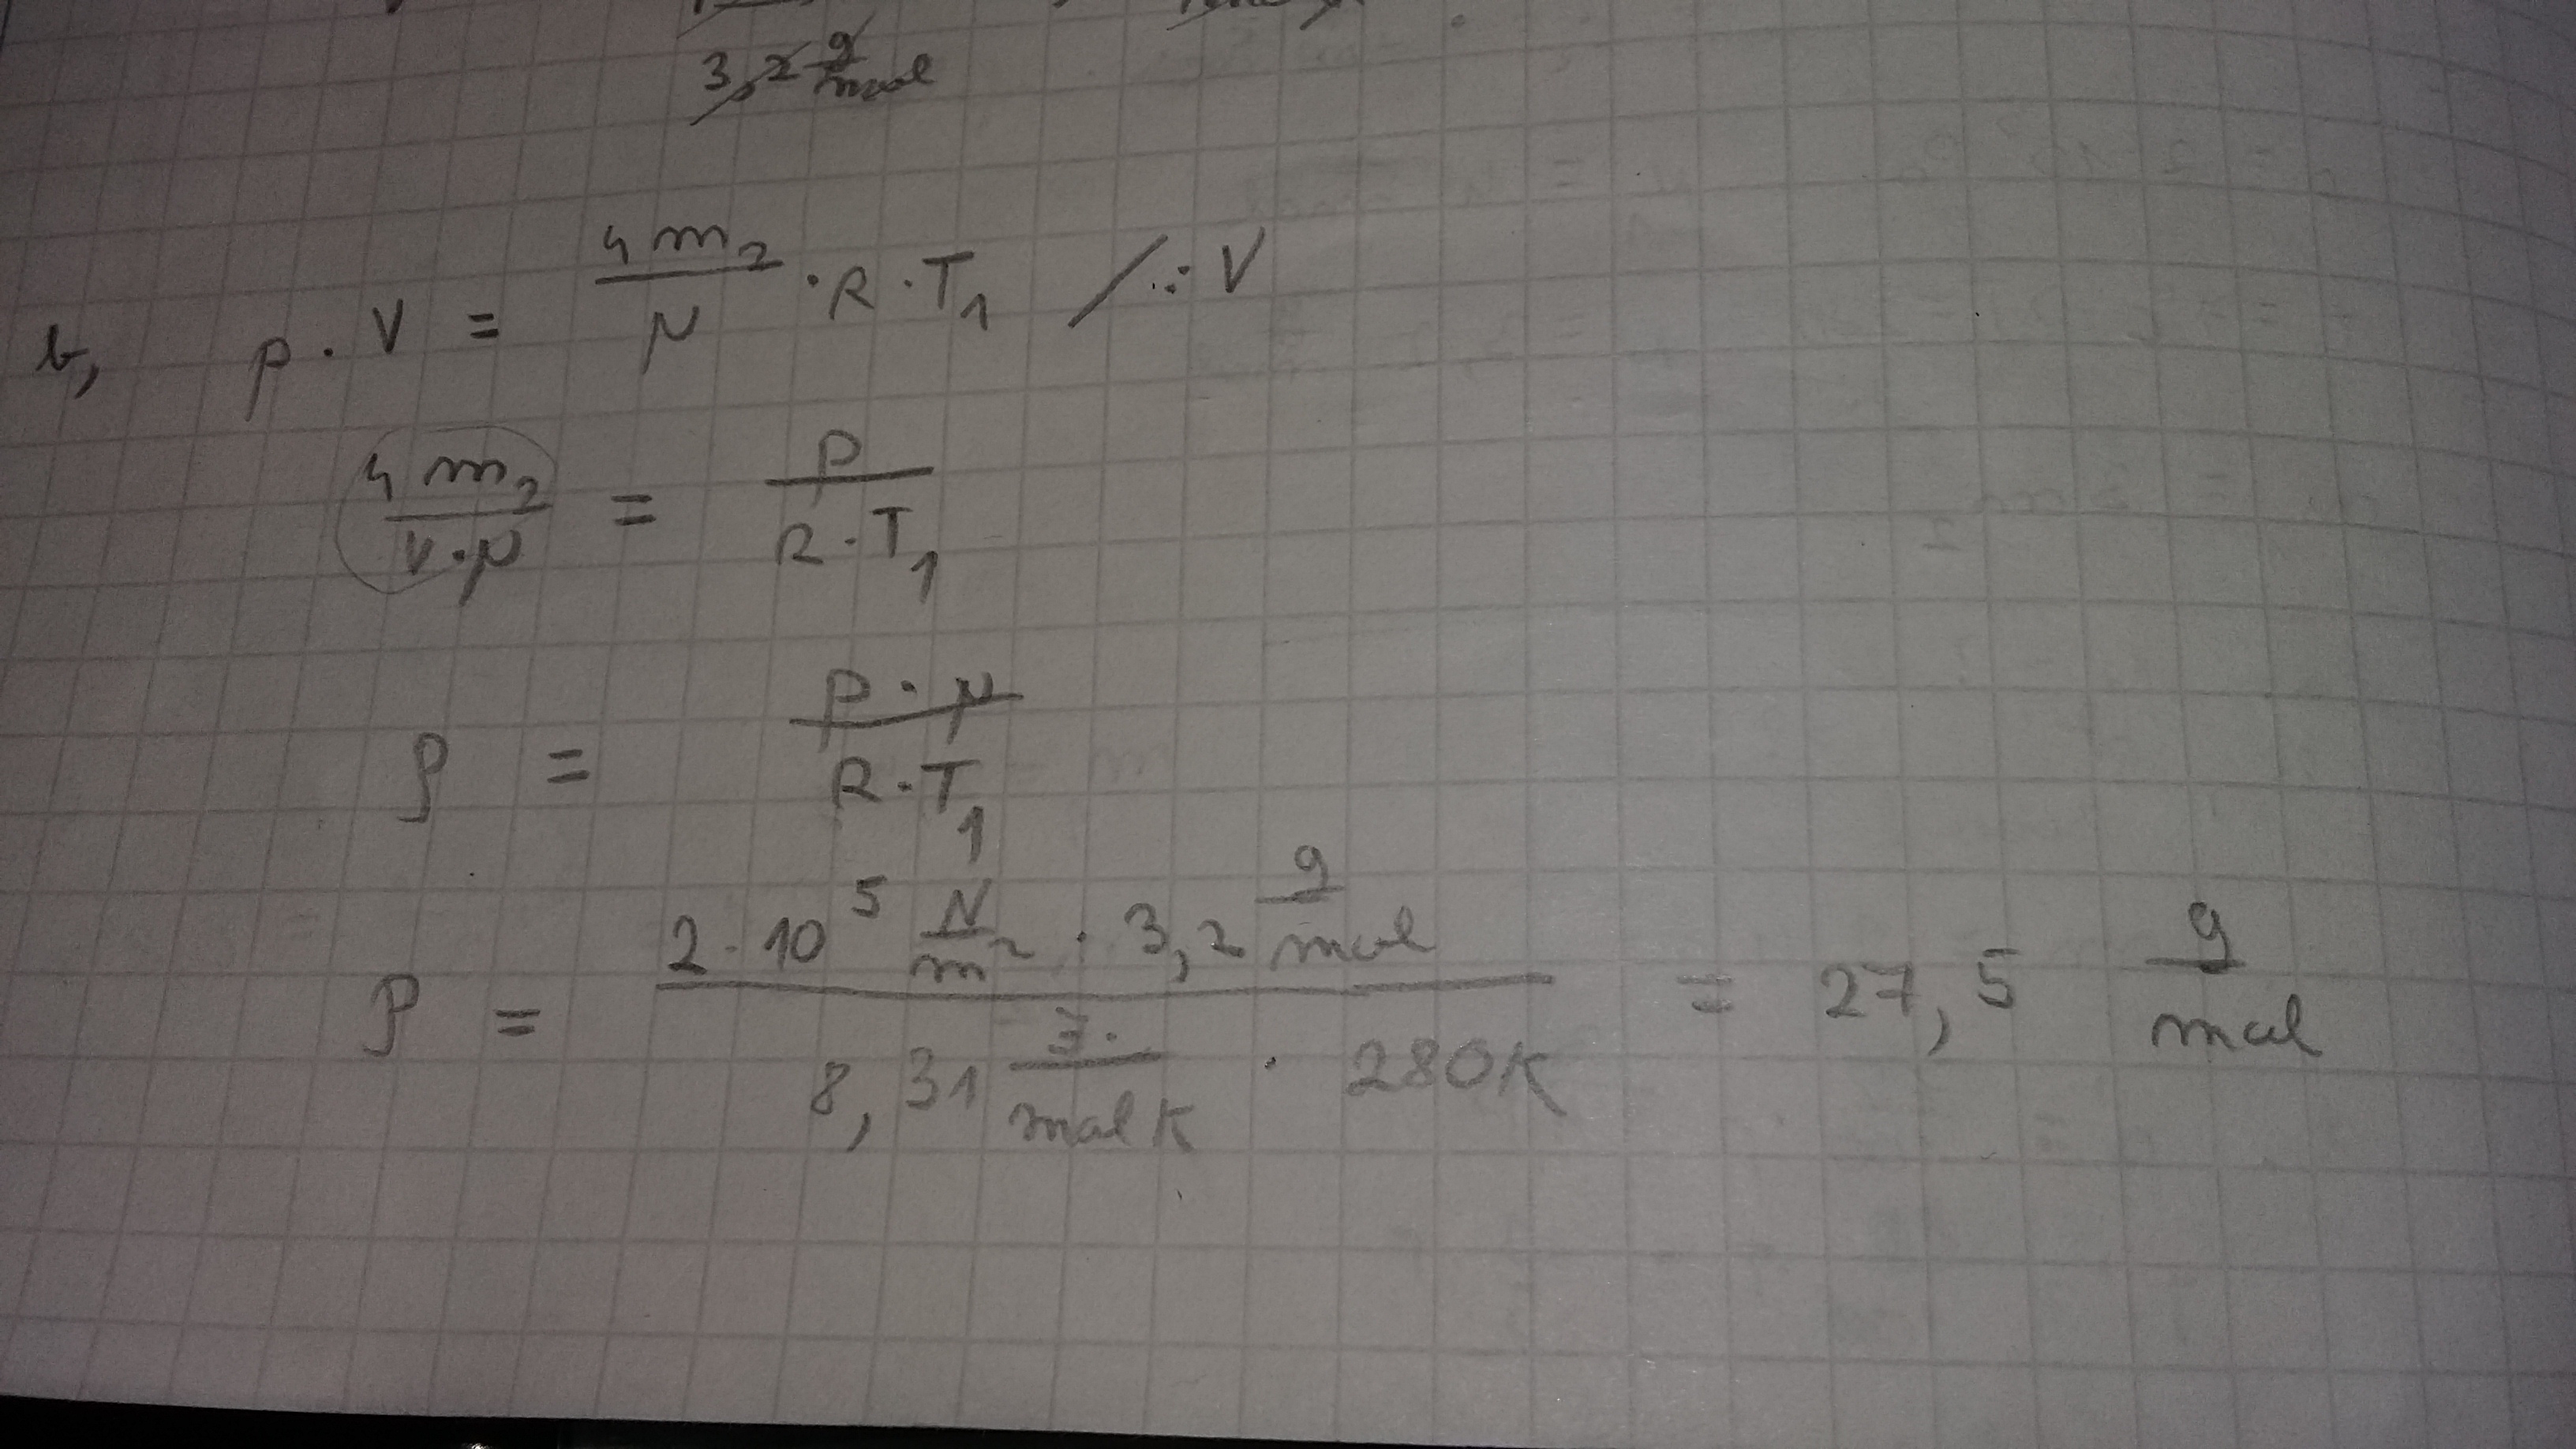 3,2 g/mol
b, p · V = 4m₂/μ · R · T₁ / : V
4m₂/V·μ = p/R·T₁
ρ = p·μ/R·T₁
ρ = 2·10⁵ N/m² · 3,2 g/mol / 8,31 J/mol K · 280K = 27,5 g/mol